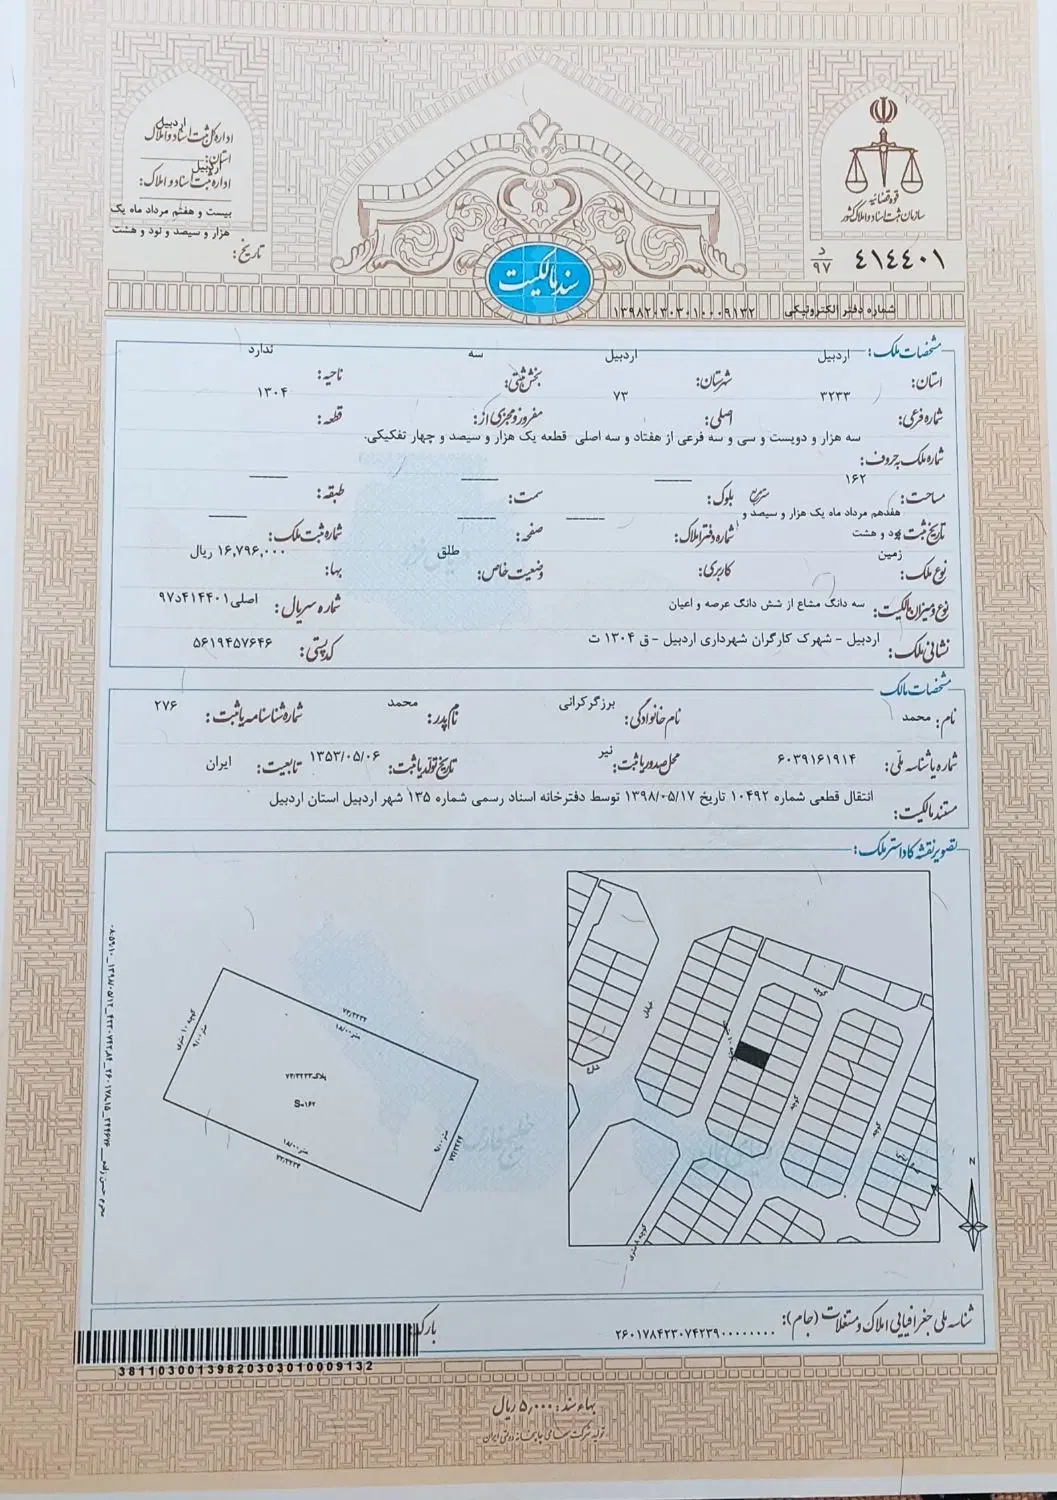 قوه قضائیه
سازمان ثبت اسناد و املاک کشور
۴۱۴۴۰۱ د ۹۷
شماره دفتر الکترونیکی ۱۳۹۸۲۰۳۰۳۰۱۰۰۰۹۱۳۲
اردبیل
اداره کل ثبت اسناد و املاک استان:
اردبیل
اداره ثبت اسناد و املاک:
بیست و هفتم مرداد ماه یک
هزار و سیصد و نود و هشت
تاریخ:
سند مالکیت
مشخصات ملک:
استان: اردبیل شهرستان: اردبیل بخش ثبتی: سه ناحیه: ندارد
شماره فرعی: ۳۲۳۳ اصلی: ۷۳ مفروز و مجزی از: قطعه: ۱۳۰۴
شماره ملک به حروف: سه هزار و دویست و سی و سه فرعی از هفتاد و سه اصلی قطعه یک هزار و سیصد و چهار تفکیکی.
مساحت: ۱۶۲ متر مربع بلوک: سمت: طبقه:
تاریخ ثبت: هفدهم مرداد ماه یک هزار و سیصد و نود و هشت شماره دفتر املاک: صفحه: شماره ثبت ملک:
نوع ملک: زمین کاربری: وضعیت خاص: طلق بها: ۱۶,۷۹۶,۰۰۰ ریال
نوع و میزان مالکیت: سه دانگ مشاع از شش دانگ عرصه و اعیان شماره سریال: اصلی۴۱۴۴۰۱د۹۷
نشانی ملک: اردبیل - شهرک کارگران شهرداری اردبیل - ق ۱۳۰۴ ت کد پستی: ۵۶۱۹۴۵۷۶۴۶
مشخصات مالک
نام: محمد نام خانوادگی: برزگرکرانی نام پدر: محمد شماره شناسنامه یا ثبت: ۲۷۶
شماره یا شناسه ملی: ۶۰۳۹۱۶۱۹۱۴ محل صدور یا ثبت: نیر تاریخ تولد یا ثبت: ۱۳۵۳/۰۵/۰۶ تابعیت: ایران
مستند مالکیت: انتقال قطعی شماره ۱۰۴۹۲ تاریخ ۱۳۹۸/۰۵/۱۷ توسط دفترخانه اسناد رسمی شماره ۱۳۵ شهر اردبیل استان اردبیل
تصویر نقشه کاداستر ملک:
خیابان
کوچه
کوچه
کوچه
کوچه ۸ متری
N
۷۳/۳۲۳۲
۱۸/۰۰ متر
کوچه ۱۰ متری
۹/۰۰ متر
پلاک ۷۳/۳۲۳۳
S=۱۶۲
۱۸/۰۰ متر
۷۳/۳۲۳۴
۹/۰۰ متر
شناسه ملی جغرافیایی املاک و مستغلات (جام): ۲۶۰۱۷۸۴۲۳۰۷۴۲۳۹۰۰۰۰۰۰۰۰۰
بارکد:
38110300139820303010009132
بهاء سند: ۵,۰۰۰ ریال
تولید شرکت سهامی چاپخانه دولتی ایران